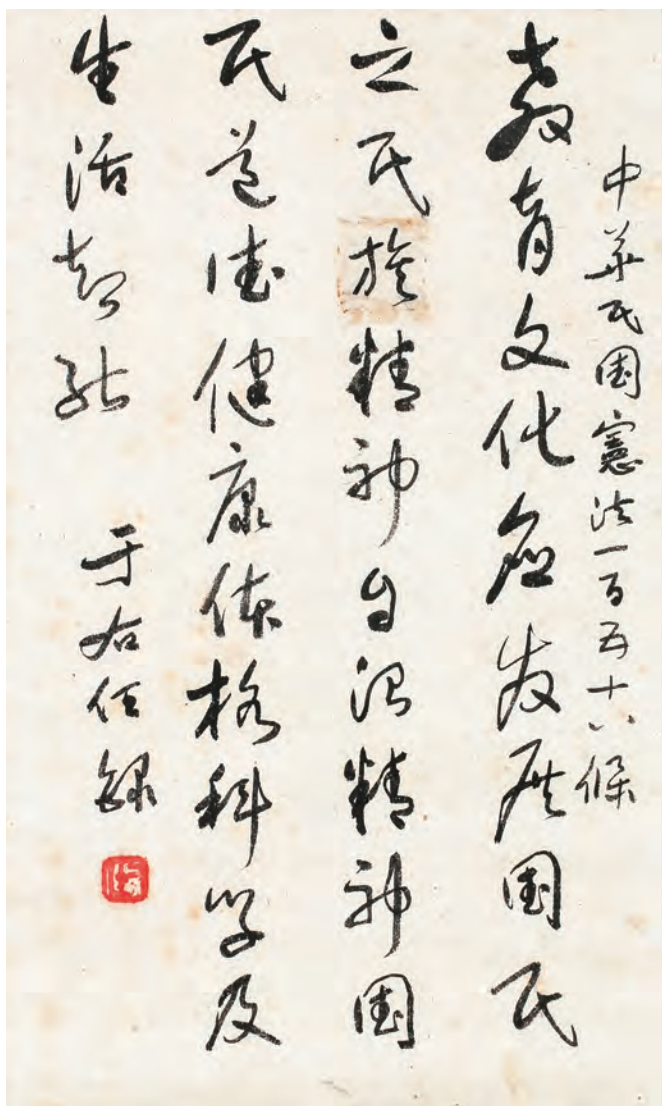 中華民國憲法一百五十八條
教育文化應發展國民
之民族精神自治精神國
民道德健康体格科學及
生活智能
于右任錄